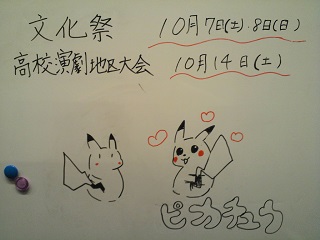 文化祭 10月7日(土)・8日(日)
高校演劇地区大会 10月14日(土)
ピカチュウ